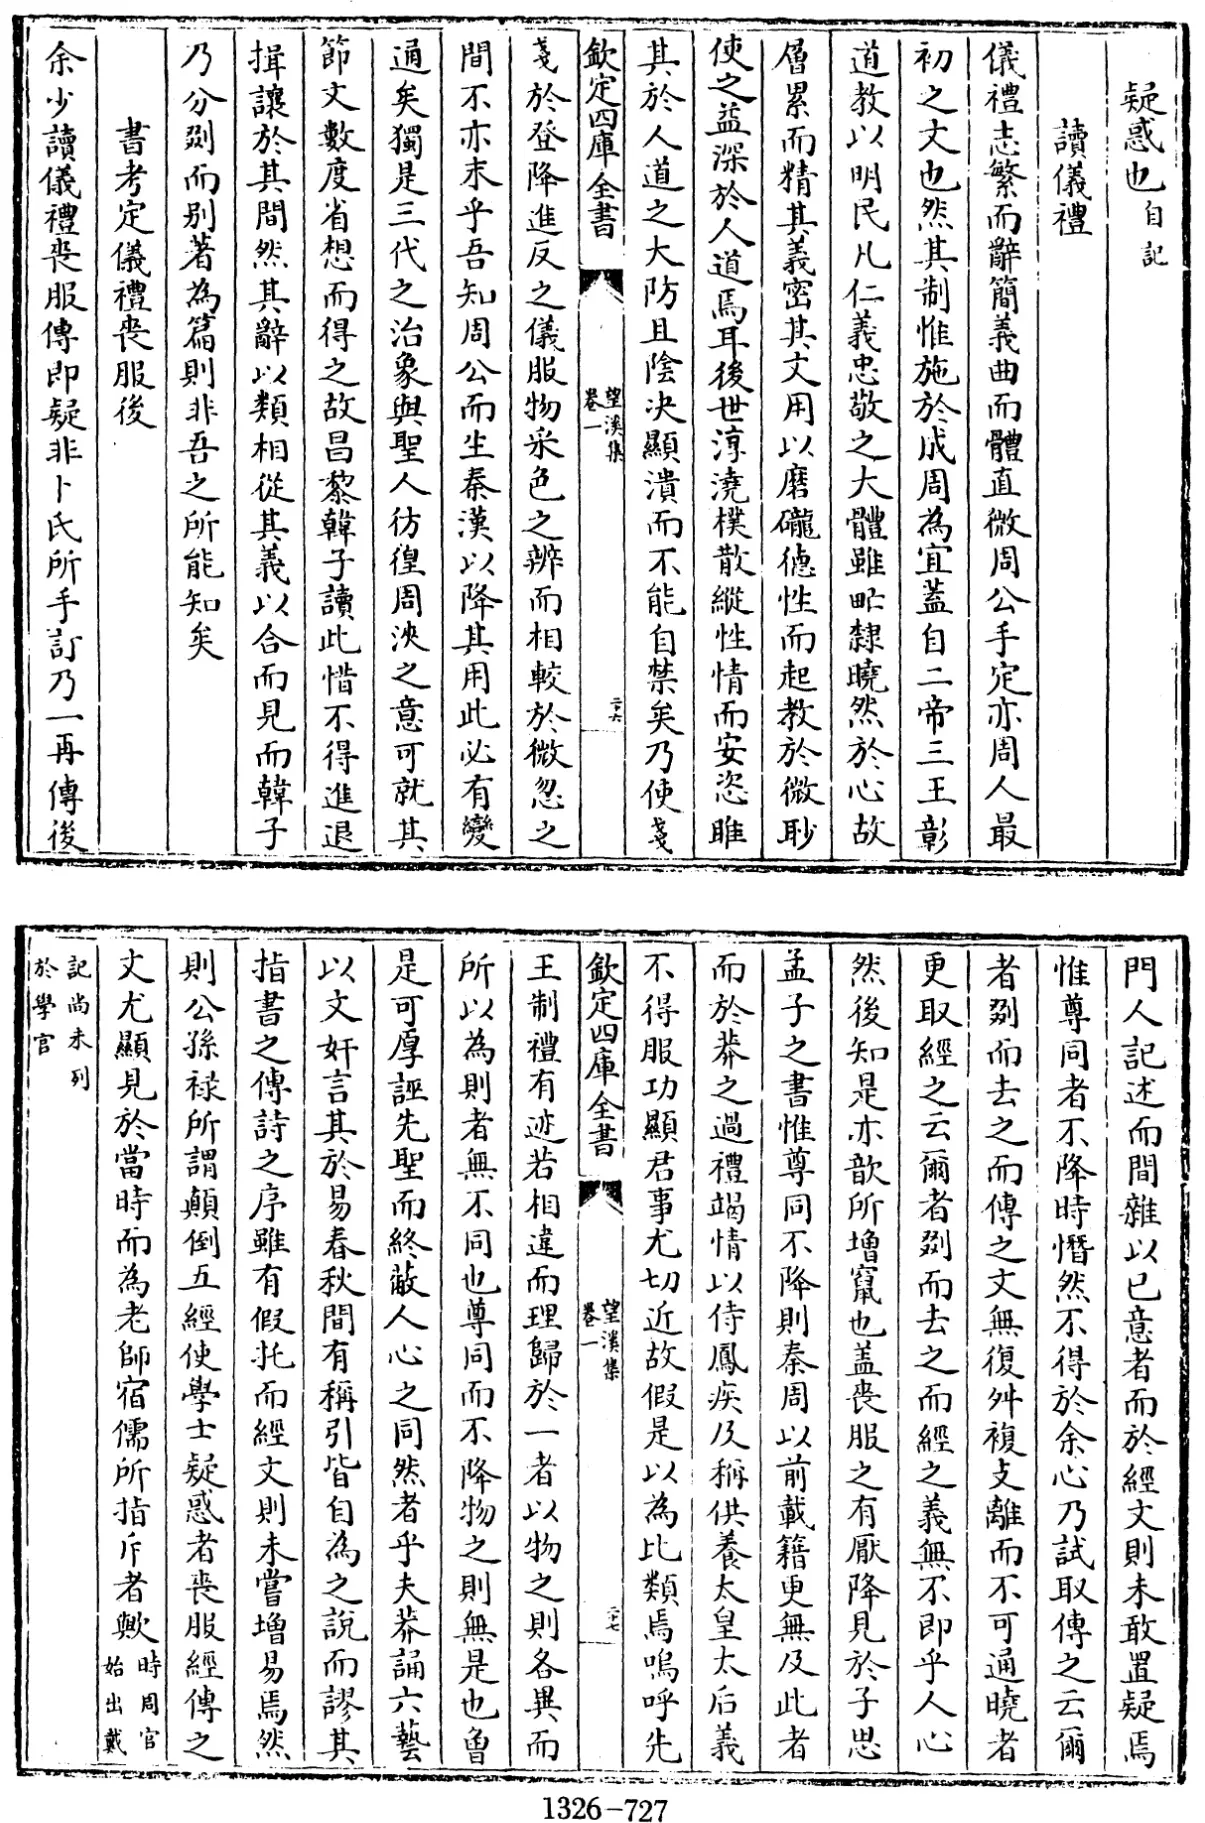 疑惑也自記
讀儀禮
儀禮志繁而辭簡義曲而體直微周公手定亦周人最
初之文也然其制惟施於成周為宜蓋自二帝三王彰
道教以明民凡仁義忠敬之大體雖甿隸曉然於心故
層累而精其義密其文用以磨礲德性而起教於微眇
使之益深於人道焉耳後世淳澆樸散縱性情而安恣睢
其於人道之大防且陰決顯潰而不能自禁矣乃使戔
欽定四庫全書
望溪集
卷一
二十六
戔於登降進反之儀服物采色之辨而相較於微忽之
間不亦末乎吾知周公而生秦漢以降其用此必有變
通矣獨是三代之治象與聖人彷徨周浹之意可就其
節文數度省想而得之故昌黎韓子讀此惜不得進退
揖讓於其間然其辭以類相從其義以合而見而韓子
乃分剟而别著為篇則非吾之所能知矣
書考定儀禮喪服後
余少讀儀禮喪服傳即疑非卜氏所手訂乃一再傳後
門人記述而間雜以已意者而於經文則未敢置疑焉
惟尊同者不降時憯然不得於余心乃試取傳之云爾
者剟而去之而傳之文無復舛複支離而不可通曉者
更取經之云爾者剟而去之而經之義無不即乎人心
然後知是亦歆所增竄也蓋喪服之有厭降見於子思
孟子之書惟尊同不降則秦周以前載籍更無及此者
而於莽之過禮竭情以侍鳳疾及稱供養太皇太后義
不得服功顯君事尤切近故假是以為比類焉嗚呼先
欽定四庫全書
望溪集
卷一
二十七
王制禮有迹若相違而理歸於一者以物之則各異而
所以為則者無不同也尊同而不降物之則無是也魯
是可厚誣先聖而終蔽人心之同然者乎夫莽誦六藝
以文奸言其於易春秋間有稱引皆自為之說而謬其
指書之傳詩之序雖有假托而經文則未嘗增易焉然
則公孫祿所謂顛倒五經使學士疑惑者喪服經傳之
文尤顯見於當時而為老師宿儒所指斥者歟時周官
始出戴
記尚未列
於學官
1326-727